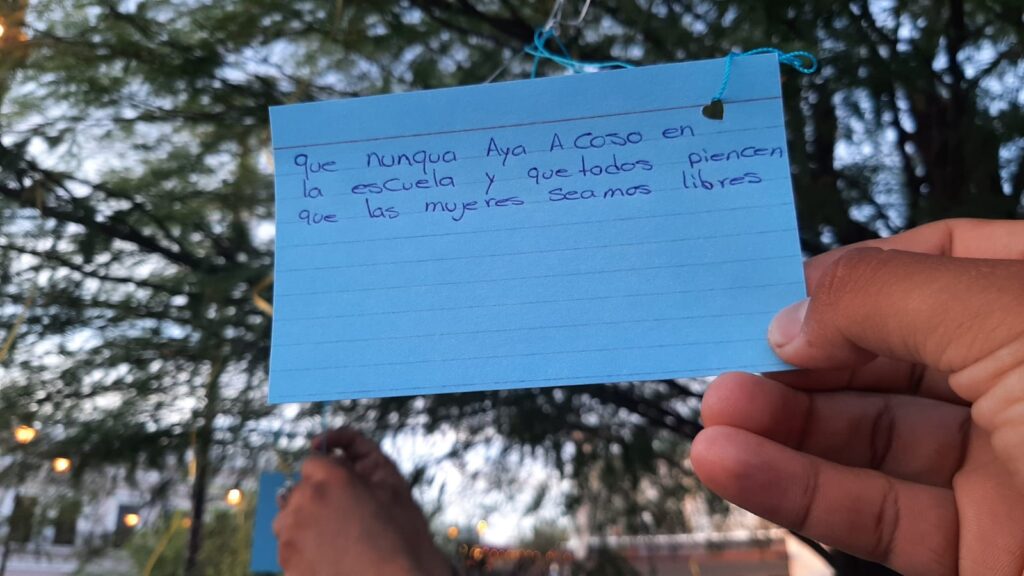 que nunqua Aya Acoso en
la escuela y que todos piencen
que las mujeres seamos libres